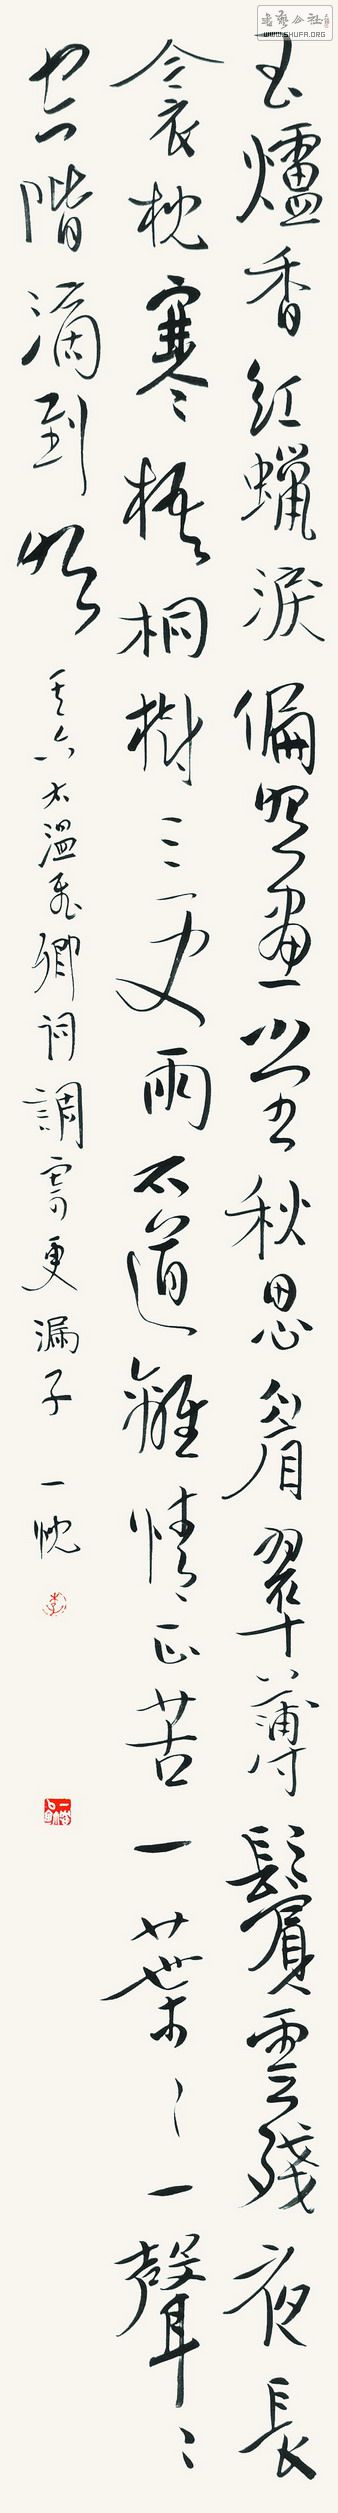 書藝公社
WWW.SHUFA.ORG
玉爐香紅蠟淚偏照畫堂秋思眉翠薄鬢雲殘夜長
衾枕寒梧桐樹三更雨不道離情正苦一葉〻一聲〻
空階滴到明
其六右溫飛卿詞調寄更漏子 一忱
李